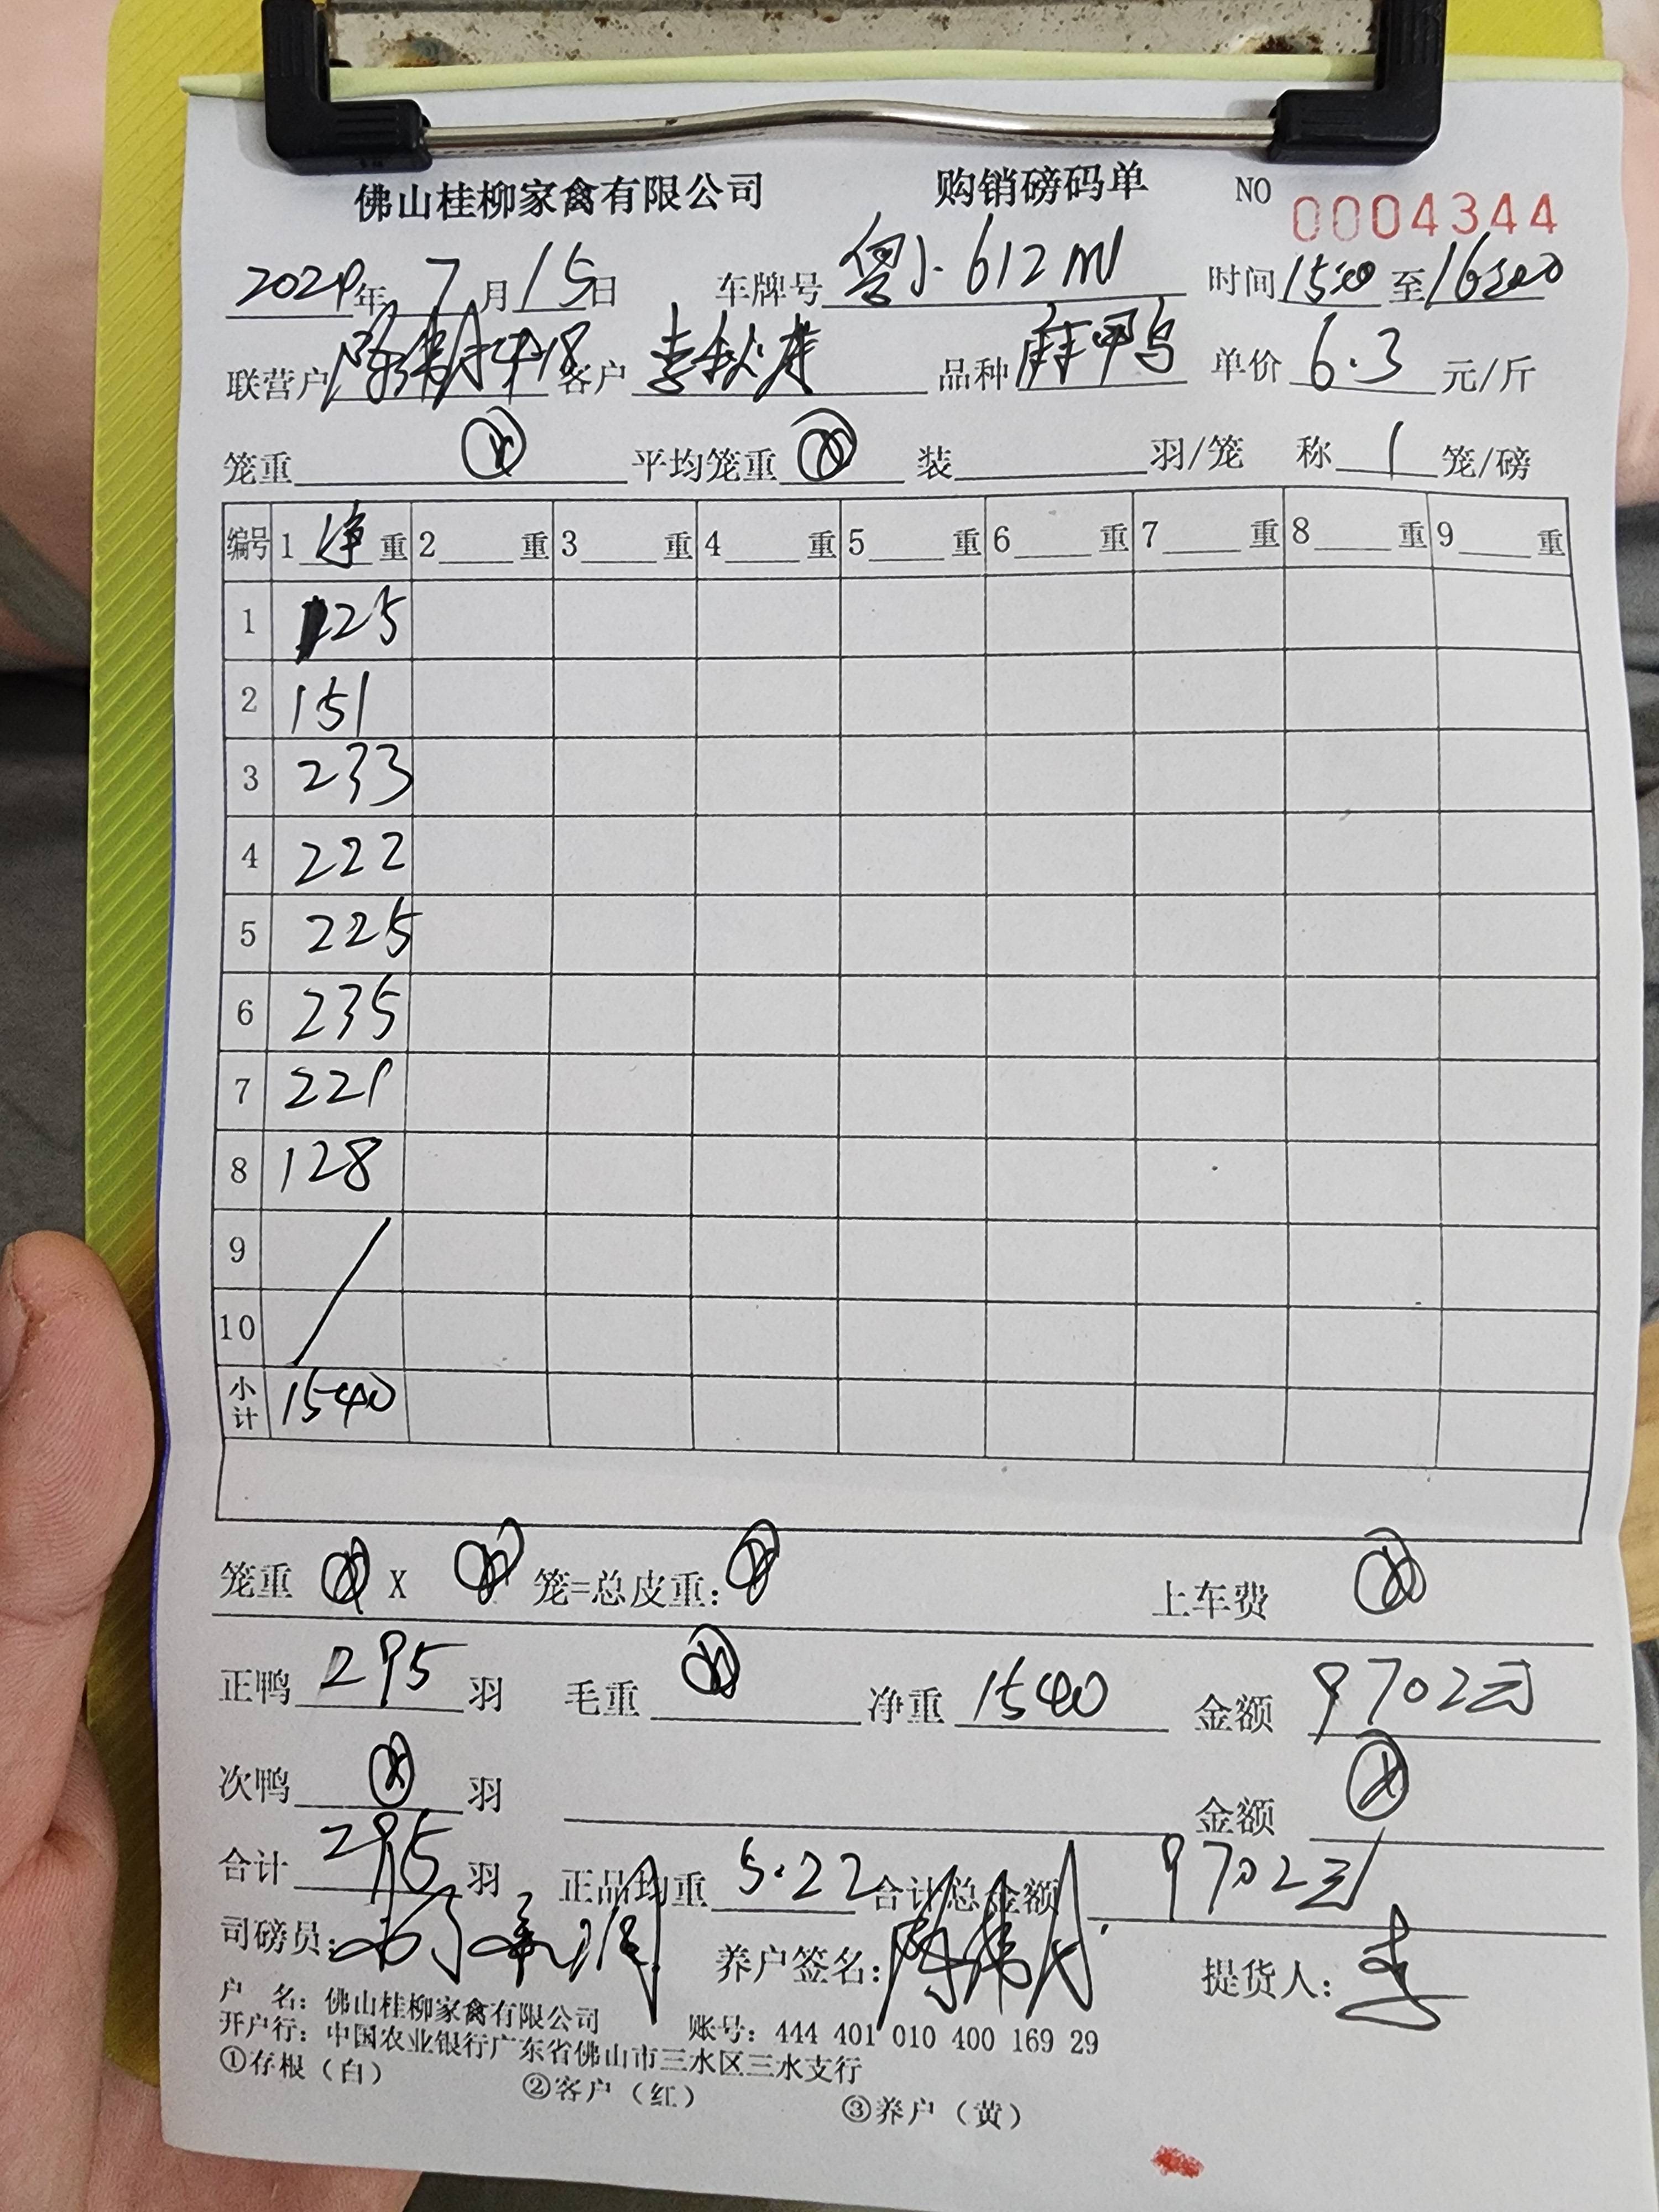 佛山桂柳家禽有限公司 购销磅码单 NO 0004344
2024年 7月15日 车牌号 612M 时间 15:00 至 16:00
联营户 客户 品种 麻鸭 单价 6.3 元/斤
笼重 平均笼重 装 羽/笼 称 1 笼/磅
编号 1 净 重 2 重 3 重 4 重 5 重 6 重 7 重 8 重 9 重
1 125
2 151
3 233
4 222
5 225
6 235
7 221
8 128
9
10
小计 1540
笼重 X 笼=总皮重: 上车费
正鸭 295 羽 毛重 净重 1540 金额 9702元
次鸭 羽 金额
合计 295 羽 正品均重 5.22 合计总金额 9702元
司磅员: 养户签名: 提货人: 李
户 名: 佛山桂柳家禽有限公司 账号: 444 401 010 400 169 29
开户行: 中国农业银行广东省佛山市三水区三水支行
①存根(白) ②客户(红) ③养户(黄)